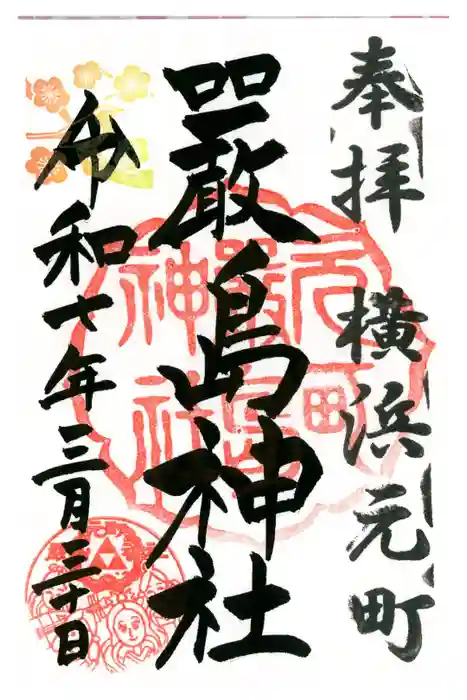 奉拝 横浜元町
嚴島神社
令和七年三月三十日
元町
嚴島
神社